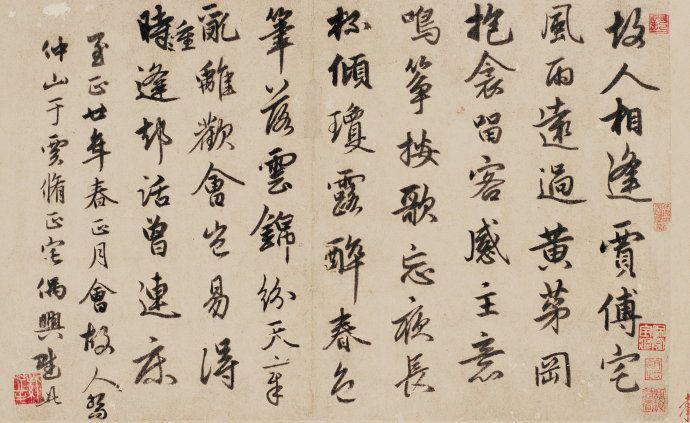 故人相逢賈傅宅
風雨遠過黃茅岡
抱衾留客感主意
鳴箏按歌忘夜長
杯傾瓊露醉春色
筆落雲錦紛天章
亂離歡會豈易得
重時逢却話曾連床
至正廿年春正月會故人
仲山于雲脩正宅偶興